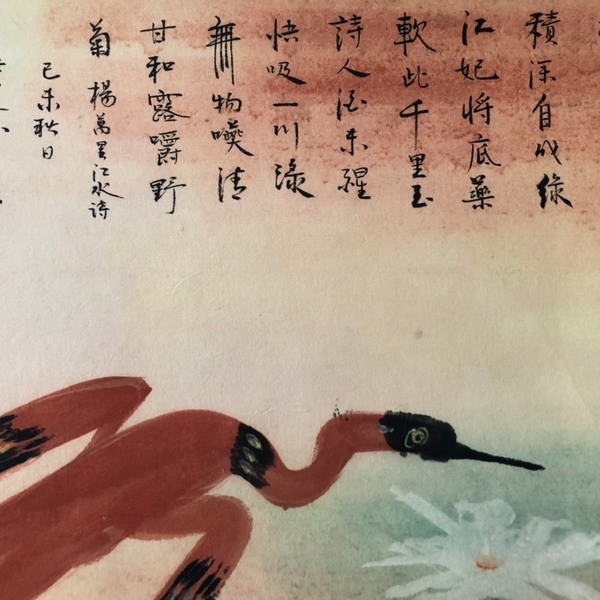 積深自成綠
江妃將底藥
軟此千里玉
詩人酒未醒
快吸一川淥
無物嚥清
甘和露嚼野
菊 楊萬里江水詩
己未秋日